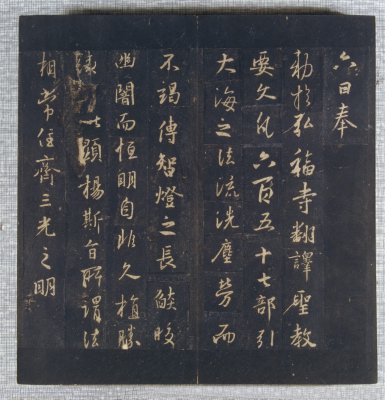 六日奉
勅於弘福寺翻譯聖教
要文凡六百五十七部引
大海之法流洗塵勞而
不竭傳智燈之長燄皎
幽闇而恒明自非久植勝
緣何以顯揚斯旨所謂法
相常住齊三光之明